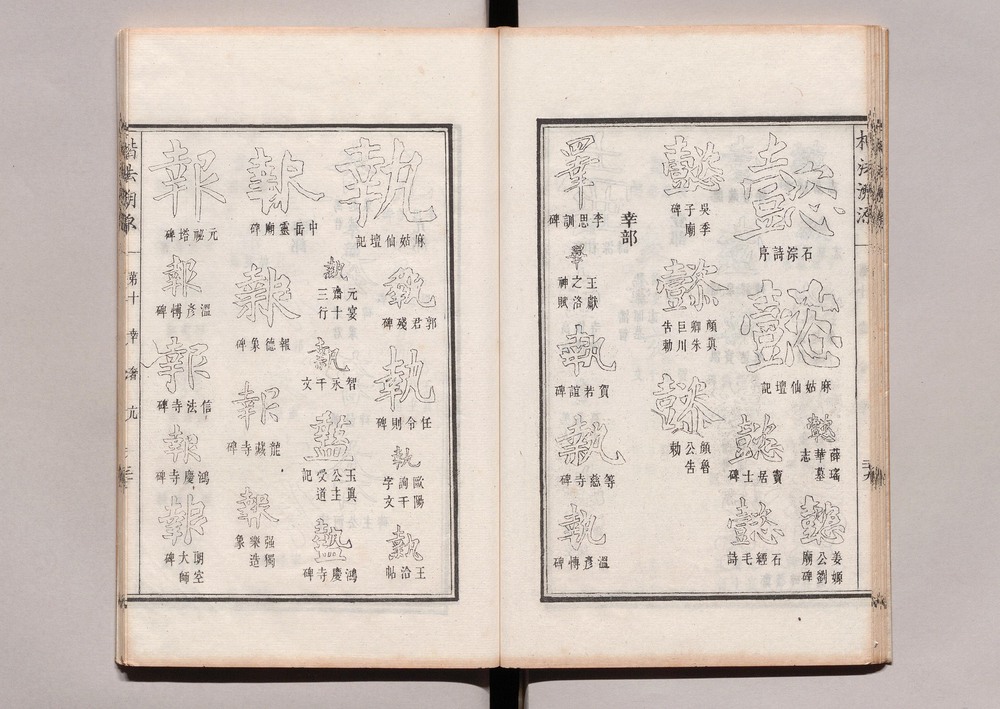 楷法溯源
懿
石淙詩序
懿
麻姑仙壇記
懿
薛瑤華墓志
懿
姜嫄公劉廟碑
懿
竇居士碑
懿
石經毛詩
懿
吳季子廟碑
懿
顏眞卿朱巨川告勅
懿
顏魯公告勅
幸部
睪
李思訓碑
睪
王獻之洛神賦
執
賀若誼碑
執
等慈寺碑
執
溫彥博碑
執
麻姑仙壇記
執
郭君殘碑
執
任令則碑
執
歐陽詢千字文
執
王洽帖
執
元宴齋十三行
執
智永千文
盩
玉眞公主受道記
盩
鴻慶寺碑
報
中岳靈廟碑
報
報德象碑
報
龍藏寺碑
報
强獨樂造象
報
元祕塔碑
報
溫彥博碑
報
信法寺碑
報
鴻慶寺碑
報
朗空大師碑
楷法溯源
第十 幸 亢